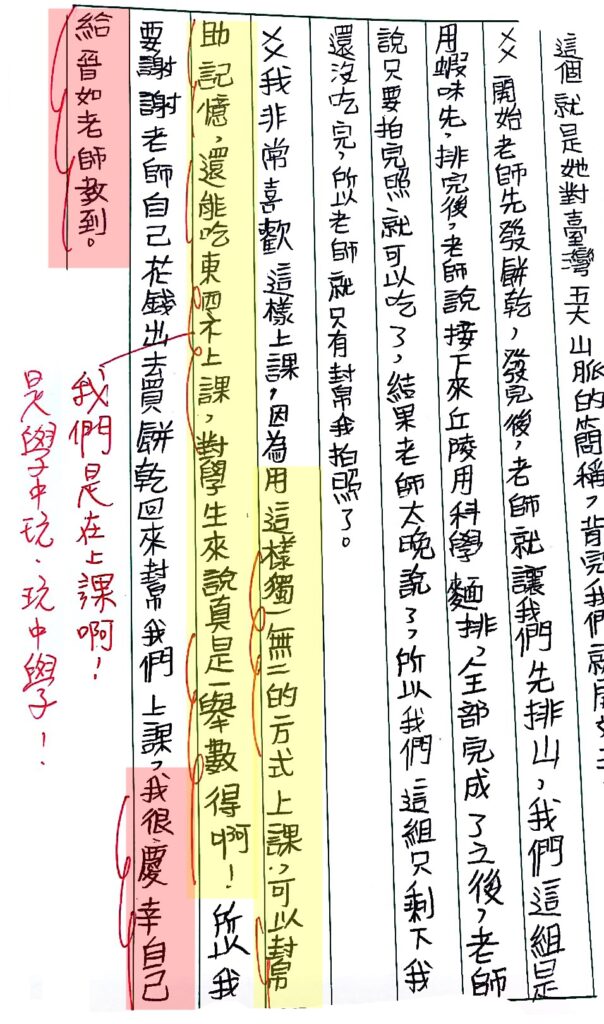 這個就是她對臺灣五大山脈的簡稱,背完我們就開
ㄨㄨ開始老師先發餅乾,發完後,老師就讓我們先排山,我們這組是
用蝦味先,排完後,老師說接下來丘陵用科學麵排,全部完成了之後,老師
說只要拍完照就可以吃了,結果老師太晚說了,所以我們這組只剩下我
還沒吃完,所以老師就只有幫我拍照了。
ㄨㄨ我非常喜歡這樣上課,因為用這樣獨一無二的方式上課,可以幫
助記憶,還能吃東西不上課,對學生來說真是一舉數得啊!所以我
要謝謝老師自己花錢出去買餅乾回來幫我們上課,我很慶幸自己
給晉如老師教到。
我們是在上課啊!
是學中玩,玩中學!